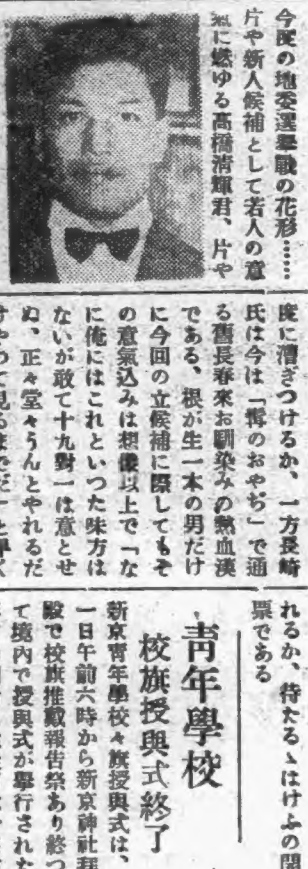 今度の地委選擧戰の花形……
片や新人候補として若人の意
氣に燃ゆる高橋清輝君、片や
度に漕ぎつけるか、一方長崎
氏は今は「㒵のおやぢ」で通
る舊長春來お馴染みの熱血漢
である、根が生一本の男だけ
に今回の立候補に際してもそ
の意氣込みは想像以上で「な
に俺にはこれといつた味方は
ないが敢て十九對一は意とせ
ぬ、正々堂々うんとやれるだ
れるか、待たるゝはけふの開
票である
靑年學校
校旗授與式終了
新京靑年學校々旗授與式は、
一日午前六時から新京神社拜
殿で校旗推戴報告祭あり終つ
て境內で授與式が擧行された